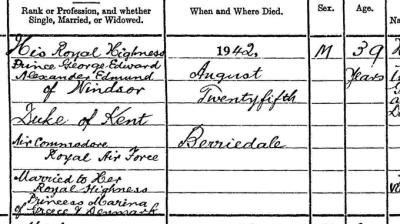 Rank or Profession, and whether
Single, Married, or Widowed.
When and Where Died.
Sex.
Age.
His Royal Highness
Prince George Edward
Alexander Edmund
of Windsor
Duke of Kent
Air Commodore
Royal Air Force
Married to Her
Royal Highness
Princess Marina
of Greece & Denmark
1942,
August
Twentyfifth
Berriedale
M
39
Years